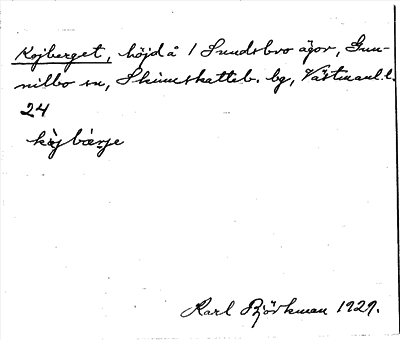 Kojberget, höjd å 1 Sundsbro ägor, Gun-
nilbo sn, Skinnskatteb. bg, Västmanl. l.
24
kòjbærje
Karl Björkman 1929.